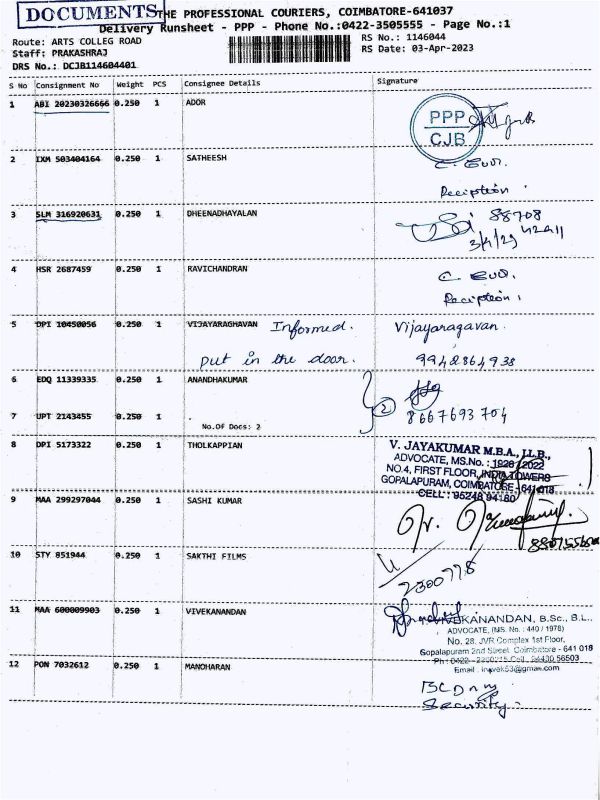 DOCUMENTS
THE PROFESSIONAL COURIERS, COIMBATORE-641037
Delivery Runsheet - PPP - Phone No.:0422-3505555 - Page No.:1
Route: ARTS COLLEG ROAD
RS No.: 1146044
Staff: PRAKASHRAJ
RS Date: 03-Apr-2023
DRS No.: DCJB114604401
S No Consignment No Weight PCS Consignee Details Signature
1 ABI 20230326666 0.250 1 ADOR
PPP
CJB
2 IXM 503404164 0.250 1 SATHEESH
Reciption
3 SLM 316920631 0.250 1 DHEENADHAYALAN
88708
42411
4 HSR 2687459 0.250 1 RAVICHANDRAN
Reciption
5 DPI 10450056 0.250 1 VIJAYARAGHAVAN Informed. Vijayaragavan.
put in the door. 9942864938
6 EDQ 11339335 0.250 1 ANANDHAKUMAR
2
7 UPT 2143455 0.250 1 .
8667693704
No.Of Docs: 2
8 DPI 5173322 0.250 1 THOLKAPPIAN
V. JAYAKUMAR M.B.A., LL.B.,
ADVOCATE, MS.No. : 1828 / 2022
NO.4, FIRST FLOOR, INDIA TOWERS
GOPALAPURAM, COIMBATORE - 641 018
CELL : 95248 94180
9 MAA 299297044 0.250 1 SASHI KUMAR
10 STY 851944 0.250 1 SAKTHI FILMS
2300778
11 MAA 600009903 0.250 1 VIVEKANANDAN
VIVEKANANDAN, B.Sc., B.L.,
ADVOCATE, (MS. No. : 440 / 1978)
No. 28, JVR Complex 1st Floor,
Gopalapuram 2nd Street, Coimbatore - 641 018
Cell : 94430 56503
12 PON 7032612 0.250 1 MANOHARAN
Security.